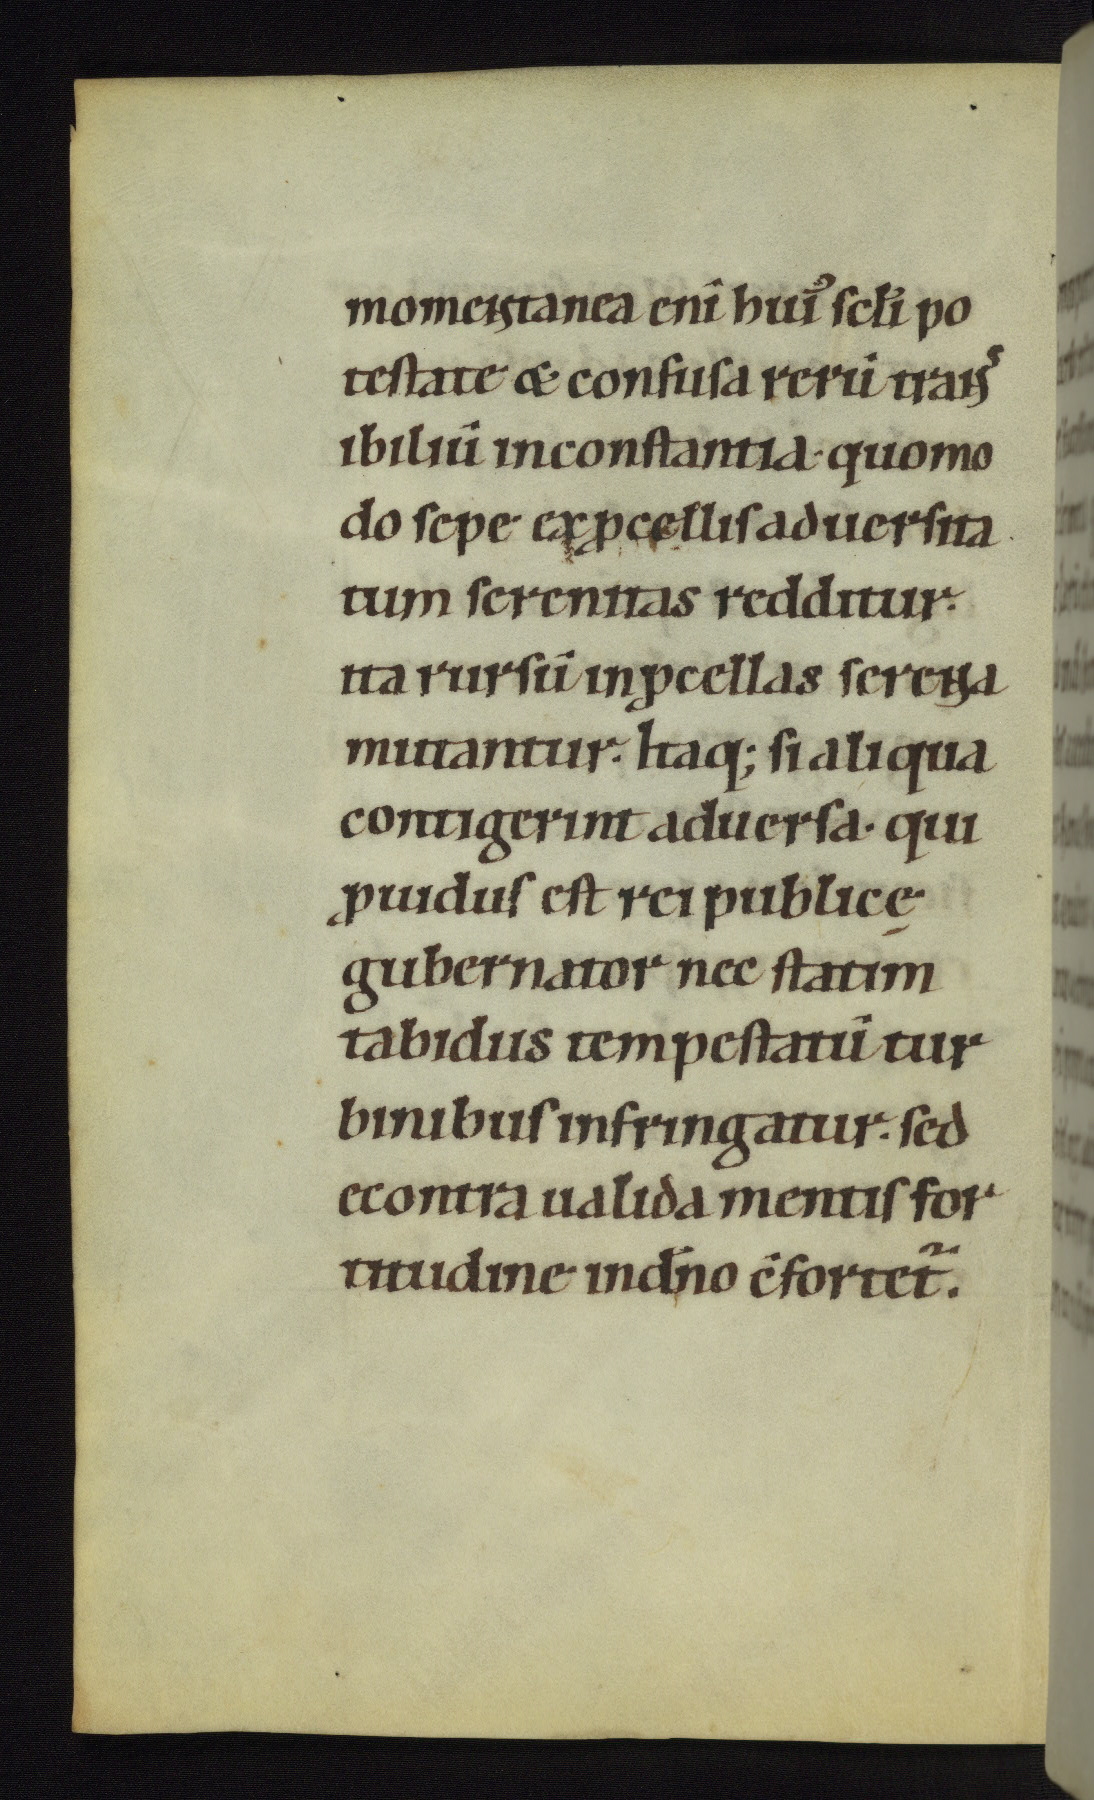 momentanea enī huiꝰ scl̄i po
testate & confusa rerū trans
ibiliū inconstantia· quomo
do sepe ex ꝓcellis aduersita
tum serenitas redditur·
ita rursū in ꝓcellas serena
mutantur. Itaq; si aliqua
contigerint aduersa· qui
ꝓuidus est rei publicę
gubernator nec statim
tabidus tempestatū tur
binibus infringatur· sed
econtra ualida mentis for
titudine in dn̄o c̄fortet᷑.